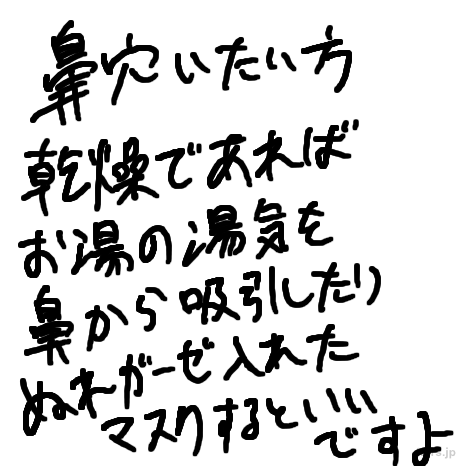 鼻穴いたい方
乾燥であれば
お湯の湯気を
鼻から吸引したり
ぬれガーゼ入れた
マスクするといい
ですよ